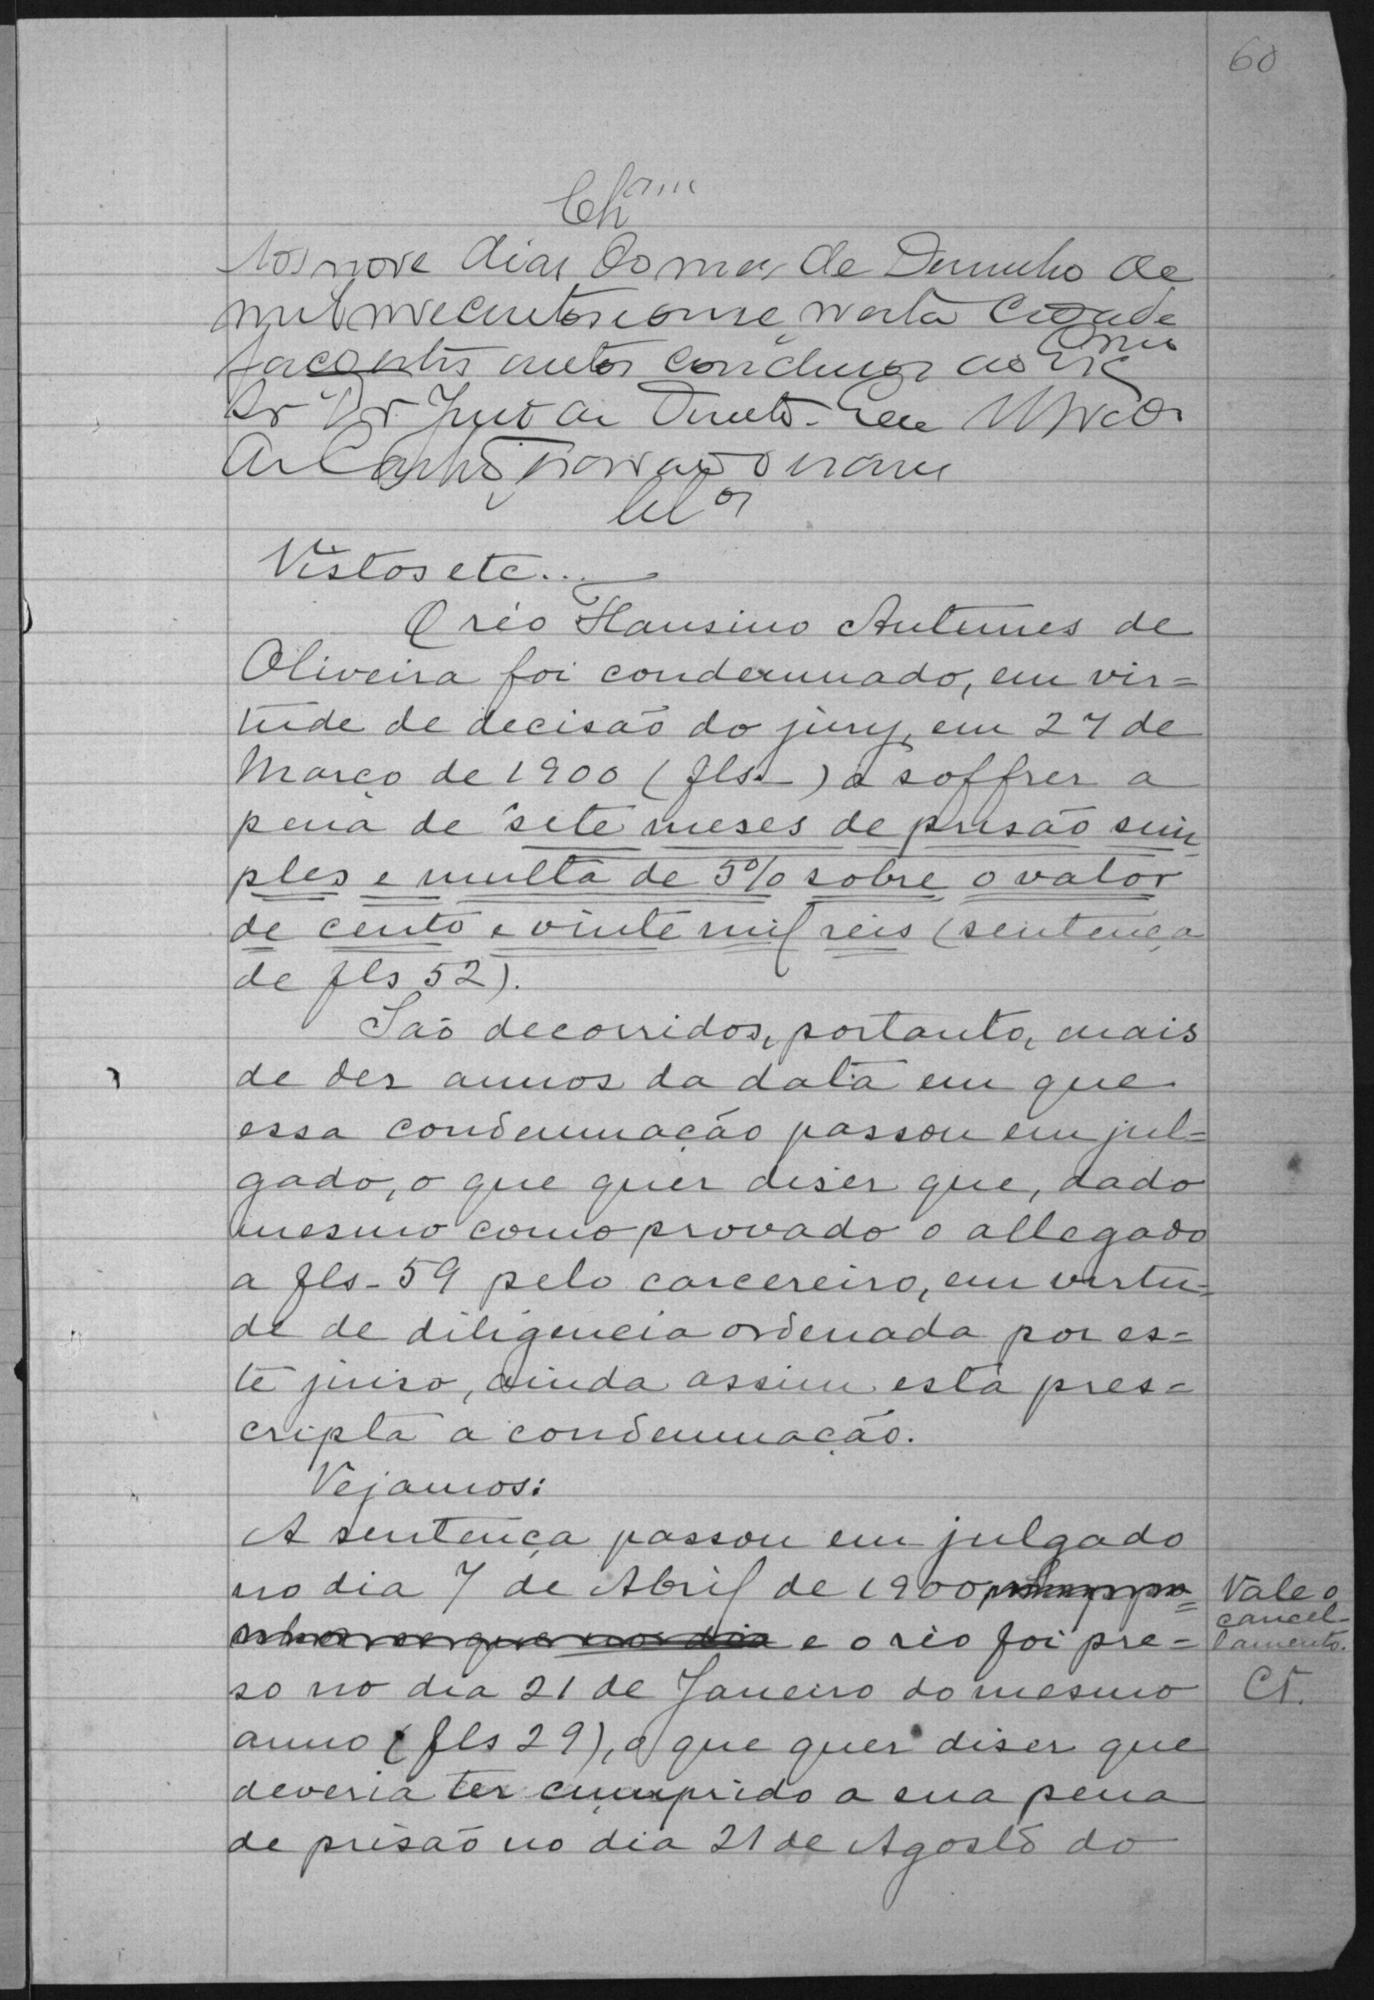 60
Aos nove dias do mes de Dezembro de
mil novecentos e onze nesta Cidade
faço estes autos conclusos ao Exmo
Sr Dr Juiz de Direito. Eu
Clos
Vistos etc...
O réo Hansino Antunes de
Oliveira foi condemnado, em vir=
tude de decisão do jury, em 27 de
Março de 1900 (fls _ ) a soffrer a
pena de sete meses de prisão sim
ples e multa de 5% sobre o valor
de cento e vinte mil reis (sentença
de fls 52).
São decorridos, portanto, mais
de des annos da data em que
essa condemnação passou em jul=
gado, o que quer diser que, dado
mesmo como provado o allegado
a fls- 59 pelo carcereiro, em virtu=
de de diligencia ordenada por es=
te juiso, ainda assim está pres=
cripta a condemnação.
Vejamos:
A sentença passou em julgado
no dia 7 de Abril de 1900
e o réo foi pre=
so no dia 21 de Janeiro do mesmo
anno (fls 29), o que quer diser que
deveria ter cumprido a sua pena
de prisão no dia 21 de Agosto do
Vale o
cancel-
lamento.
CT.